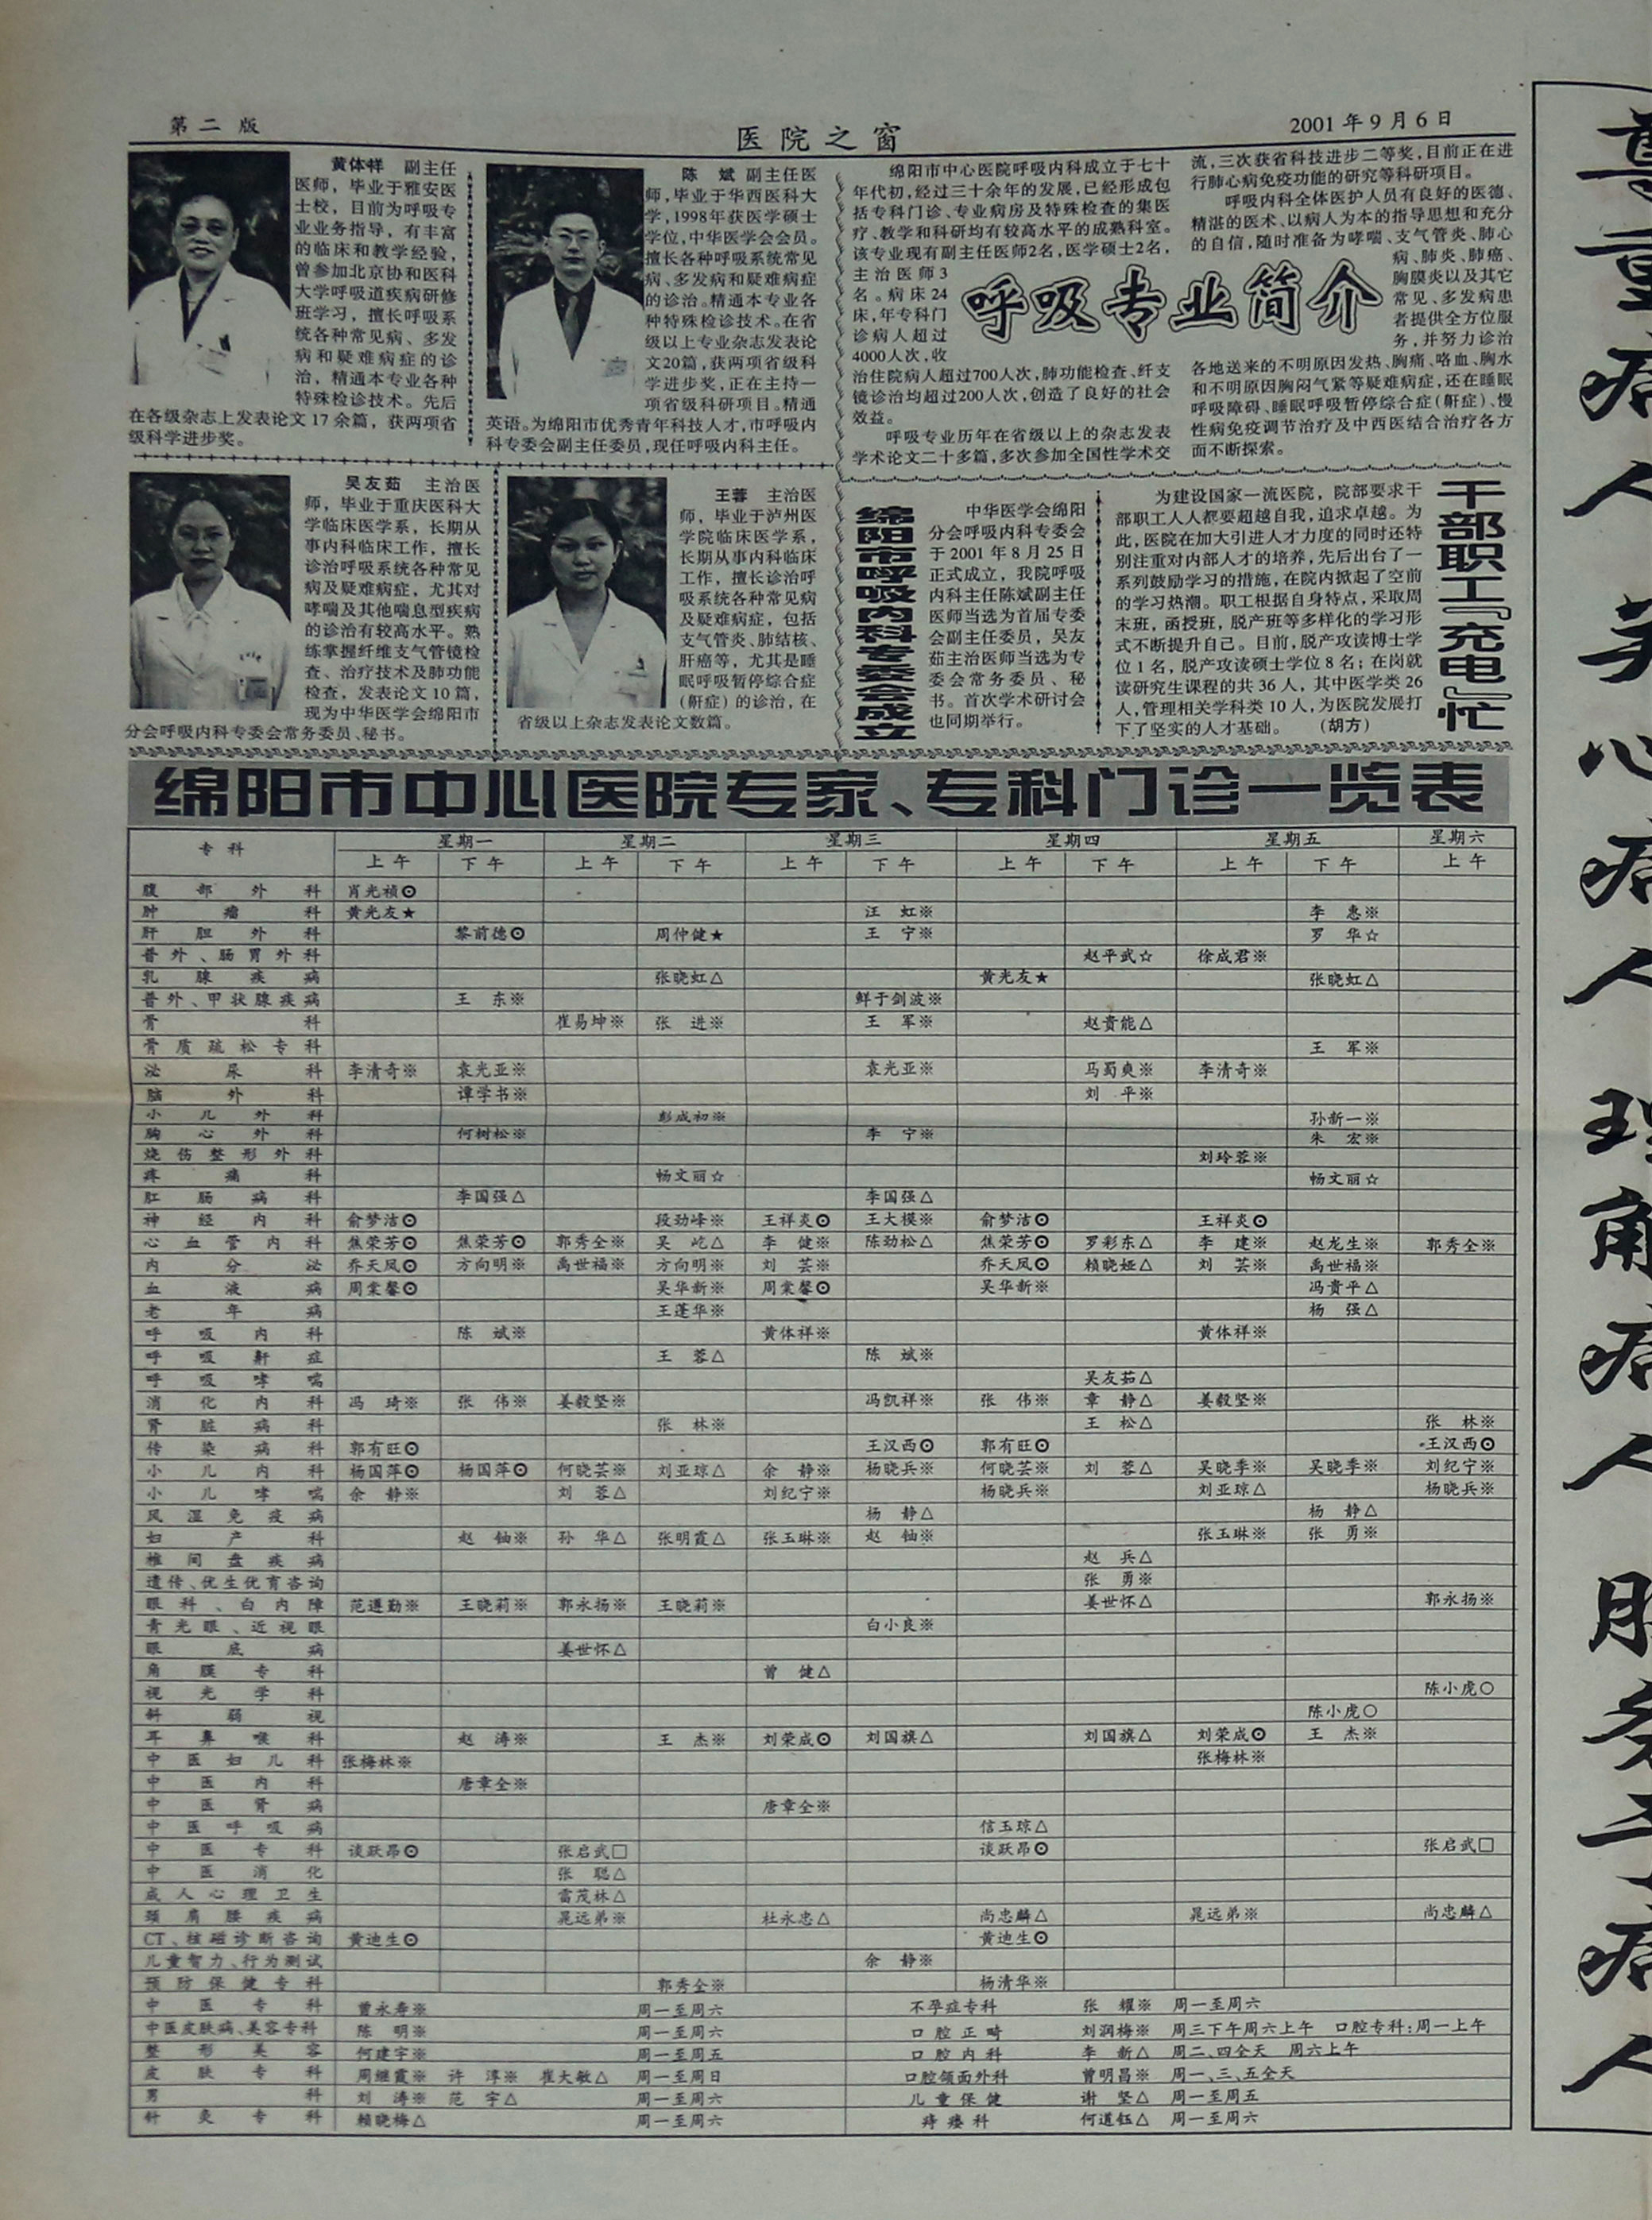 第二版
医院之窗
2001年9月6日
黄体祥 副主任
医师，毕业于雅安医
士校，目前为呼吸专
业业务指导，有丰富
的临床和教学经验，
曾参加北京协和医科
大学呼吸道疾病研修
班学习，擅长呼吸系
统各种常见病、多发
病和疑难病症的诊
治，精通本专业各种
特殊检诊技术。先后
在各级杂志上发表论文17余篇，获两项省
级科学进步奖。
陈 斌 副主任医
师，毕业于华西医科大
学，1998年获医学硕士
学位，中华医学会会员。
擅长各种呼吸系统常见
病、多发病和疑难病症
的诊治。精通本专业各
种特殊检诊技术。在省
级以上专业杂志发表论
文20篇，获两项省级科
学进步奖，正在主持一
项省级科研项目。精通
英语。为绵阳市优秀青年科技人才，市呼吸内
科专委会副主任委员，现任呼吸内科主任。
呼吸专业简介
绵阳市中心医院呼吸内科成立于七十
年代初，经过三十余年的发展，已经形成包
括专科门诊、专业病房及特殊检查的集医
疗、教学和科研均有较高水平的成熟科室。
该专业现有副主任医师2名，医学硕士2名，
主治医师3
名。病床24
床，年专科门
诊病人超过
4000人次，收
治住院病人超过700人次，肺功能检查、纤支
镜诊治均超过200人次，创造了良好的社会
效益。
呼吸专业历年在省级以上的杂志发表
学术论文二十多篇，多次参加全国性学术交
流，三次获省科技进步二等奖，目前正在进
行肺心病免疫功能的研究等科研项目。
呼吸内科全体医护人员有良好的医德、
精湛的医术、以病人为本的指导思想和充分
的自信，随时准备为哮喘、支气管炎、肺心
病、肺炎、肺癌、
胸膜炎以及其它
常见、多发病患
者提供全方位服
务，并努力诊治
各地送来的不明原因发热、胸痛、咯血、胸水
和不明原因胸闷气紧等疑难病症，还在睡眠
呼吸障碍、睡眠呼吸暂停综合症(鼾症)、慢
性病免疫调节治疗及中西医结合治疗各方
面不断探索。
吴友茹 主治医
师，毕业于重庆医科大
学临床医学系，长期从
事内科临床工作，擅长
诊治呼吸系统各种常见
病及疑难病症，尤其对
哮喘及其他喘息型疾病
的诊治有较高水平。熟
练掌握纤维支气管镜检
查、治疗技术及肺功能
检查，发表论文10篇，
现为中华医学会绵阳市
分会呼吸内科专委会常务委员、秘书。
王蓉 主治医
师，毕业于泸州医
学院临床医学系，
长期从事内科临床
工作，擅长诊治呼
吸系统各种常见病
及疑难病症，包括
支气管炎、肺结核、
肝癌等，尤其是睡
眠呼吸暂停综合症
(鼾症)的诊治，在
省级以上杂志发表论文数篇。
绵阳市呼吸内科专委会成立
中华医学会绵阳
分会呼吸内科专委会
于2001年8月25日
正式成立，我院呼吸
内科主任陈斌副主任
医师当选为首届专委
会副主任委员，吴友
茹主治医师当选为专
委会常务委员、秘
书。首次学术研讨会
也同期举行。
干部职工『充电』忙
为建设国家一流医院，院部要求干
部职工人人都要超越自我，追求卓越。为
此，医院在加大引进人才力度的同时还特
别注重对内部人才的培养，先后出台了一
系列鼓励学习的措施，在院内掀起了空前
的学习热潮。职工根据自身特点，采取周
末班，函授班，脱产班等多样化的学习形
式不断提升自己。目前，脱产攻读博士学
位1名，脱产攻读硕士学位8名；在岗就
读研究生课程的共36人，其中医学类26
人，管理相关学科类10人，为医院发展打
下了坚实的人才基础。 (胡方)
绵阳市中心医院专家、专科门诊一览表
专科 星期一 星期二 星期三 星期四 星期五 星期六
上午 下午 上午 下午 上午 下午 上午 下午 上午 下午 上午
腹部外科 肖光祯⊙
肿瘤科 黄光友★ 汪虹※ 李惠※
肝胆外科 黎前德⊙ 周仲健★ 王宁※ 罗华☆
普外、肠胃外科 赵平武☆ 徐成君※
乳腺疾病 张晓虹△ 黄光友★ 张晓虹△
普外、甲状腺疾病 王东※ 鲜于剑波※
骨科 崔易坤※ 张进※ 王军※ 赵贵能△
骨质疏松专科 王军※
泌尿科 李清奇※ 袁光亚※ 袁光亚※ 马蜀爽※ 李清奇※
脑外科 谭学书※ 刘平※
小儿外科 彭成初※ 孙新一※
胸心外科 何树松※ 李宁※ 朱宏※
烧伤整形外科 刘玲蓉※
疼痛科 畅文丽☆ 畅文丽☆
肛肠病科 李国强△ 李国强△
神经内科 俞梦洁⊙ 段劲峰※ 王祥炎⊙ 王大模※ 俞梦洁⊙ 王祥炎⊙
心血管内科 焦荣芳⊙ 焦荣芳⊙ 郭秀全※ 吴屹△ 李健※ 陈劲松△ 焦荣芳⊙ 罗彩东△ 李建※ 赵龙生※ 郭秀全※
内分泌 乔天凤⊙ 方向明※ 禹世福※ 方向明※ 刘芸※ 乔天凤⊙ 赖晓娅△ 刘芸※ 禹世福※
血液病 周棠馨⊙ 吴华新※ 周棠馨⊙ 吴华新※ 冯贵平△
老年病 王蓬华※ 杨强△
呼吸内科 陈斌※ 黄体祥※ 黄体祥※
呼吸鼾症 王蓉△ 陈斌※
呼吸哮喘 吴友茹△
消化内科 冯琦※ 张伟※ 姜毅坚※ 冯凯祥※ 张伟※ 章静△ 姜毅坚※
肾脏病科 张林※ 王松△ 张林※
传染病科 郭有旺⊙ 王汉西⊙ 郭有旺⊙ 王汉西⊙
小儿内科 杨国萍⊙ 杨国萍⊙ 何晓芸※ 刘亚琼△ 余静※ 杨晓兵※ 何晓芸※ 刘蓉△ 吴晓季※ 吴晓季※ 刘纪宁※
小儿哮喘 余静※ 刘蓉△ 刘纪宁※ 杨晓兵※ 刘亚琼△ 杨晓兵※
风湿免疫病 杨静△ 杨静△
妇产科 赵铀※ 孙华△ 张明霞△ 张玉琳※ 赵铀※ 张玉琳※ 张勇※
椎间盘疾病 赵兵△
遗传、优生优育咨询 张勇※
眼科、白内障 范遵勤※ 王晓莉※ 郭永扬※ 王晓莉※ 姜世怀△ 郭永扬※
青光眼、近视眼 白小良※
眼底病 姜世怀△
角膜专科 曾健△
视光学科 陈小虎○
斜弱视 陈小虎○
耳鼻喉科 赵涛※ 王杰※ 刘荣成⊙ 刘国旗△ 刘国旗△ 刘荣成⊙ 王杰※
中医妇儿科 张梅林※ 张梅林※
中医内科 唐章全※
中医肾病 唐章全※
中医呼吸病 信玉琼△
中医专科 谈跃昂⊙ 张启武□ 谈跃昂⊙ 张启武□
中医消化 张聪△
成人心理卫生 雷茂林△
颈肩腰疾病 晁远弟※ 杜永忠△ 尚忠麟△ 晁远弟※ 尚忠麟△
CT、核磁诊断咨询 黄迪生⊙ 黄迪生⊙
儿童智力、行为测试 余静※
预防保健专科 郭秀全※ 杨清华※
中医专科 曾永寿※ 周一至周六 不孕症专科 张耀※ 周一至周六
中医皮肤病、美容专科 陈明※ 周一至周六 口腔正畸 刘润梅※ 周三下午周六上午 口腔专科：周一上午
整形美容 何建宇※ 周一至周五 口腔内科 李新△ 周二、四全天 周六上午
皮肤专科 周继霞※ 许淳※ 崔大敏△ 周一至周日 口腔颌面外科 曾明昌※ 周一、三、五全天
男科 刘涛※ 范宇△ 周一至周六 儿童保健 谢坚△ 周一至周五
针灸专科 赖晓梅△ 周一至周六 痔瘘科 何道钰△ 周一至周六